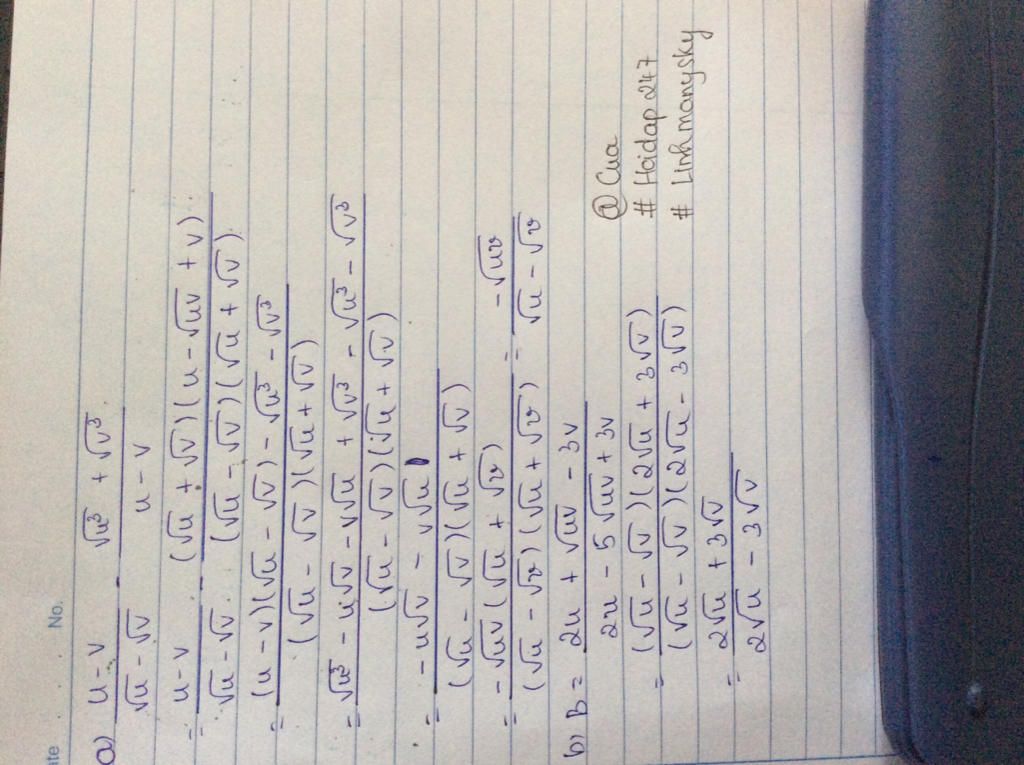 ate No.
a) (u - v)/(√u - √v) - (√u³ + √v³)/(u - v)
= (u - v)/(√u - √v) - (√u + √v)(u - √uv + v)/(√u - √v)(√u + √v)
= ((u - v)(√u - √v) - √u³ - √v³)/(√u - √v)(√u + √v)
= (√u³ - u√v - v√u + √v³ - √u³ - √v³)/(√u - √v)(√u + √v)
= (- u√v - v√u)/(√u - √v)(√u + √v)
= - √uv(√u + √v)/(√u - √v)(√u + √v) = - √uv/(√u - √v)
b) B = (2u + √uv - 3v)/(2u - 5√uv + 3v)
= (√u - √v)(2√u + 3√v)/(√u - √v)(2√u - 3√v)
= (2√u + 3√v)/(2√u - 3√v)
@ Cua
# Hoidap 247
# Linhmanysky